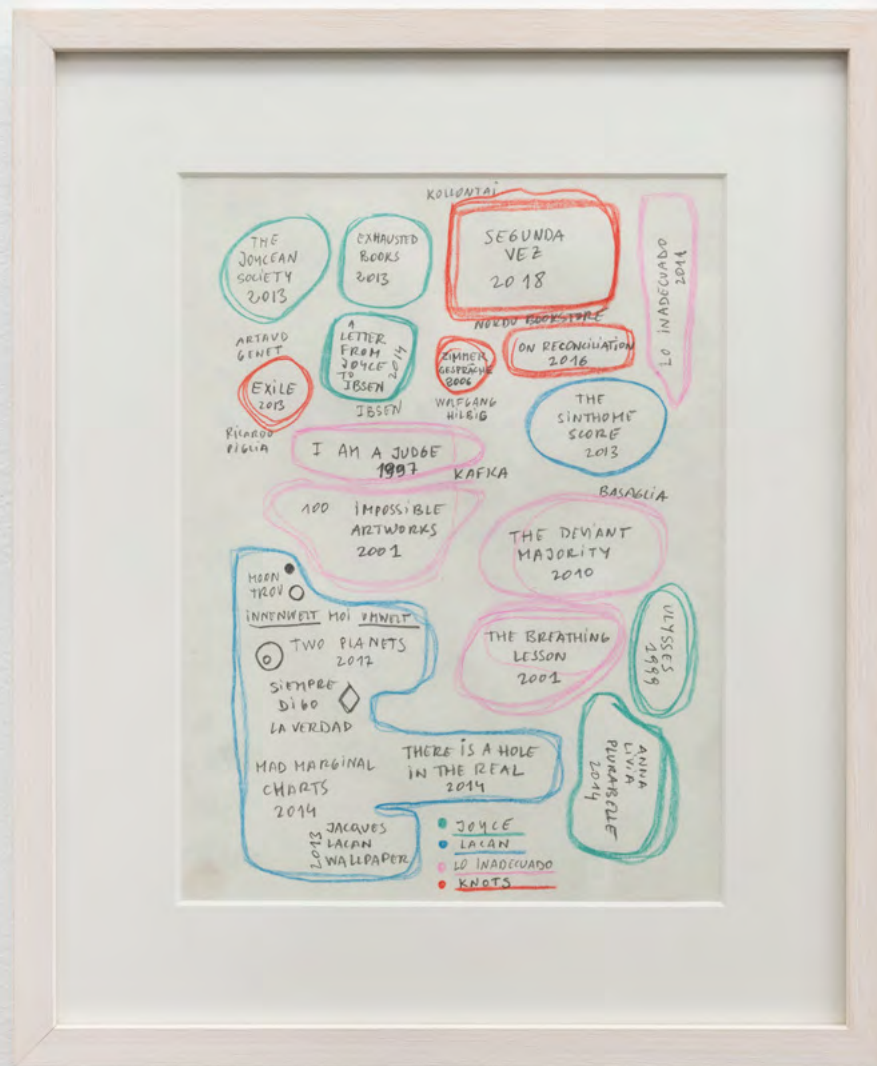 KOLLONTAI
THE
JOYCEAN
SOCIETY
2013
EXHAUSTED
BOOKS
2013
SEGUNDA
VEZ
2018
LO INADECUADO
2011
NORDU BOOKSTORE
ARTAUD
GENET
A
LETTER
FROM
JOYCE
TO
IBSEN
2014
ZIMMER
GESPRÄCHE
2006
ON RECONCILIATION
2016
EXILE
2013
IBSEN
WOLFGANG
HILBIG
THE
SINTHOME
SCORE
2013
RICARDO
PIGLIA
I AM A JUDGE
1997
KAFKA
BASAGLIA
100 IMPOSSIBLE
ARTWORKS
2001
THE DEVIANT
MAJORITY
2010
MOON
TROU
INNENWELT MOI UMWELT
TWO PLANETS
2017
ULYSSES
1999
THE BREATHING
LESSON
2001
SIEMPRE
DIGO
LA VERDAD
ANNA
LIVIA
PLURABELLE
2014
MAD MARGINAL
CHARTS
2014
THERE IS A HOLE
IN THE REAL
2014
2013
JACQUES
LACAN
WALLPAPER
JOYCE
LACAN
LO INADECUADO
KNOTS